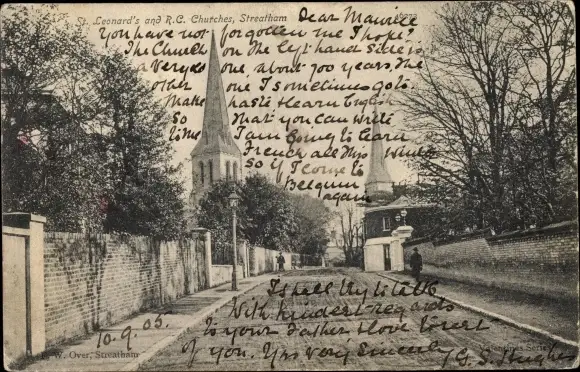 St. Leonard's and R.C. Churches, Streatham
Dear Maurice
You have not forgotten me I hope?
The Church on the left hand side is
a very old one, about 700 years, the
other one I sometimes go to.
Make haste & learn English
so that you can write
to me I am going to learn
French all this Winter
so if I come to
Belgium
again
I shall try to talk
With kindest regards
to your Father & love to rest
of you. Yrs very sincerely G. S. Hughes
10.9.05.
W. Over, Streatham
Series